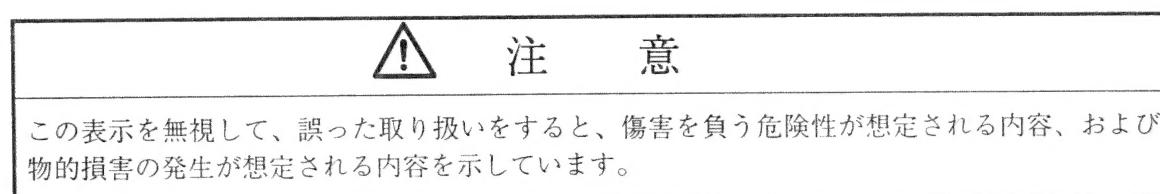 注　意
この表示を無視して、誤った取り扱いをすると、傷害を負う危険性が想定される内容、および
物的損害の発生が想定される内容を示しています。